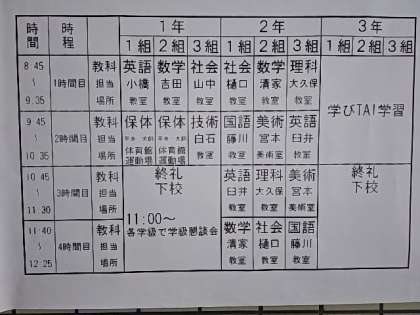 時間 時程 1年 2年 3年
1組 2組 3組 1組 2組 3組 1組 2組 3組
8:45 ～ 9:35 1時間目 教科 英語 数学 社会 社会 数学 理科 学びTAI学習
担当 小橋 吉田 山中 樋口 濱家 大久保
場所 教室 教室 教室 教室 教室 教室
9:45 ～ 10:35 2時間目 教科 保体 保体 技術 国語 美術 英語
担当 白石 藤川 宮本 臼井
場所 体育館 運動場 体育館 運動場 教室 教室 美術室 教室
10:45 ～ 11:30 3時間目 教科 終礼 下校 英語 理科 美術 終礼 下校
担当 臼井 大久保 宮本
場所 教室 教室 美術室
11:00～
各学級で学級懇談会
11:40 ～ 12:25 4時間目 教科 数学 社会 国語
担当 濱家 樋口 藤川
場所 教室 教室 教室